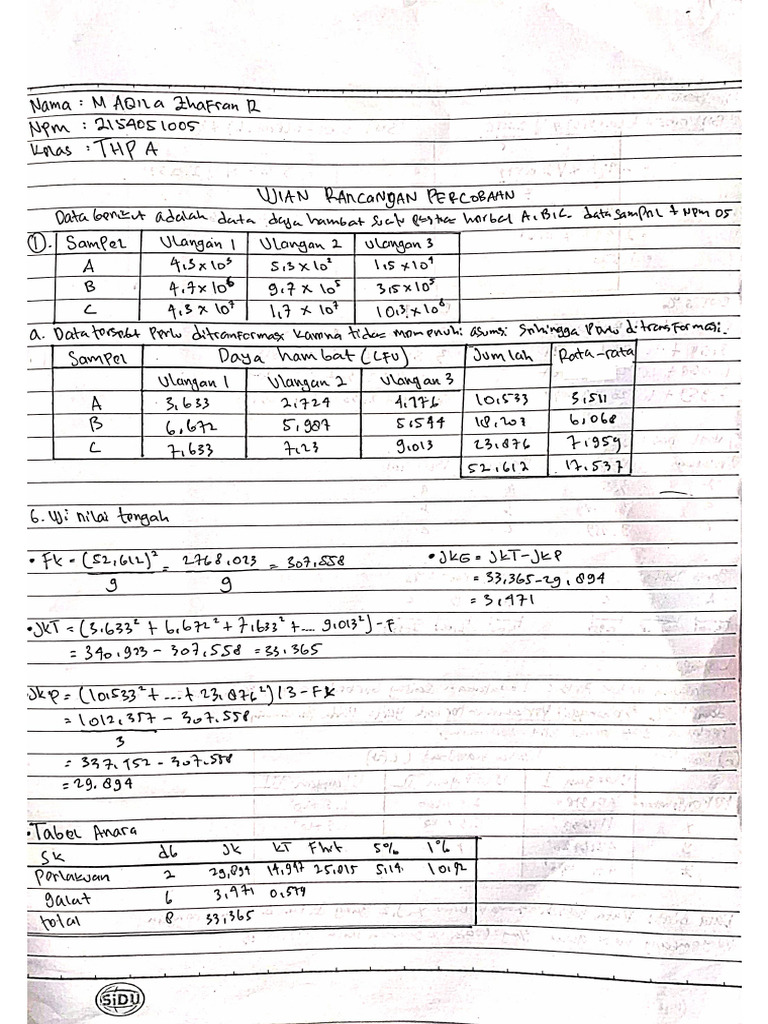 Nama : M AQila Zhafran R
Npm : 2154051005
Kelas : THP A
UJIAN RANCANGAN PERCOBAAN
Data berikut adalah data daya hambat herbal A, B, C. data sampel + NPM 05
①. Sampel Ulangan 1 Ulangan 2 Ulangan 3
A 4,3 x 10³ 5,3 x 10² 1,5 x 10⁴
B 4,7 x 10⁶ 9,7 x 10⁵ 3,5 x 10⁵
C 4,3 x 10⁷ 1,7 x 10⁷ 10,3 x 10⁶
a. Data tersebut Perlu ditranformasi karena tidak memenuhi asumsi sehingga Perlu ditransformasi.
Sampel Daya hambat (CFU) Jumlah Rata-rata
Ulangan 1 Ulangan 2 Ulangan 3
A 3,633 2,724 4,176 10,533 3,511
B 6,672 5,987 5,544 18,203 6,068
C 7,633 7,23 9,013 23,876 7,959
52,612 17,537
6. Uji nilai tengah
• Fk = (52,612)² = 2768,023 = 307,558 • JKG = JKT-JKP
9 9 = 33,365-29,894
= 3,471
• JKT = (3,633² + 6,672² + 7,633² + .... 9,013²) - F
= 340,923 - 307,558 = 33,365
JKP = (10,533² + ... + 23,876²) / 3 - FK
= 1012,357 - 307,558
3
= 337,452 - 307,558
= 29,894
• Tabel Anara
SK db JK KT Fhit 5% 1%
Perlakuan 2 29,894 14,947 25,815 5,14 10,92
galat 6 3,471 0,579
total 8 33,365
SiDU